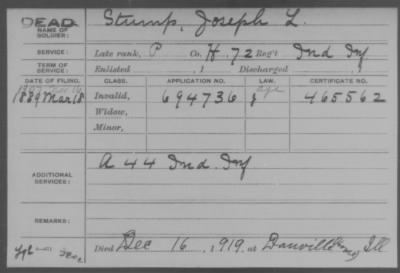 DEAD.
NAME OF SOLDIER: Stump, Joseph L.
SERVICE: Late rank, P Co. H, 72 Reg't Ind Inf
TERM OF SERVICE: Enlisted , 1 Discharged , 1
DATE OF FILING. CLASS. APPLICATION NO. LAW. CERTIFICATE NO.
1889 Mar 18 Invalid, 694736 465562
Widow,
Minor,
ADDITIONAL SERVICES: A 44 Ind. Inf
REMARKS:
Died Dec 16, 1919, at Danville Ill